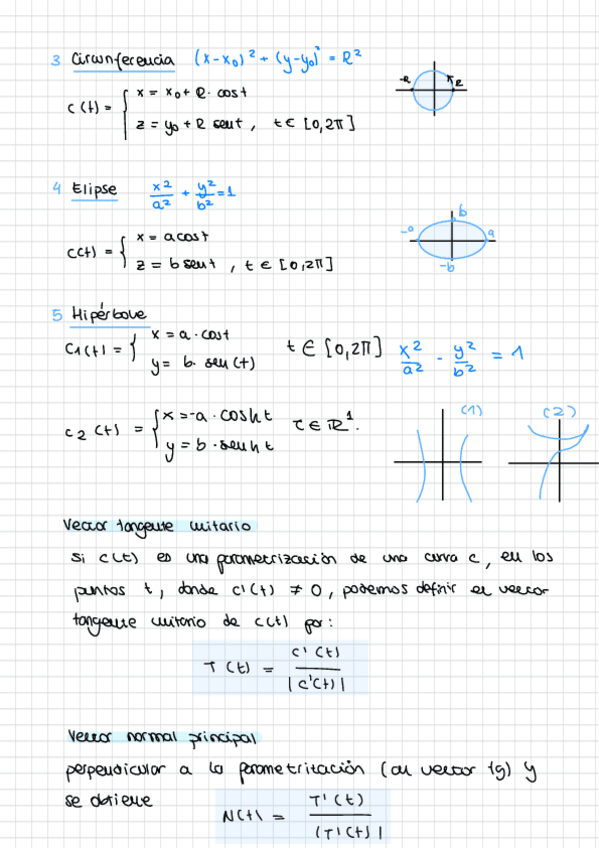 3 Circunferencia (x-x₀)² + (y-y₀)² = R²
c(t) = { x = x₀ + R · cos t
z = y₀ + R sen t , t ∈ [0,2π]
-R R
4 Elipse x²/a² + y²/b² = 1
c(t) = { x = a cos t
z = b sen t , t ∈ [0,2π]
b
-a a
-b
5 Hipérbole
C1(t) = { x = a · cos t
y = b · sen (t)
t ∈ [0,2π] x²/a² - y²/b² = 1
c2 (t) = { x = -a · cosh t
y = b · senh t
t ∈ ℝ¹.
(1) (2)
Vector tangente unitario
Si c(t) es una parametrización de una curva c, en los
puntos t, donde c'(t) ≠ 0, podemos definir el vector
tangente unitario de c(t) por:
T (t) = c'(t) / |c'(t)|
Vector normal principal
perpendicular a la parametritación (al vector tg) y
se obtiene
N(t) = T'(t) / |T'(t)|